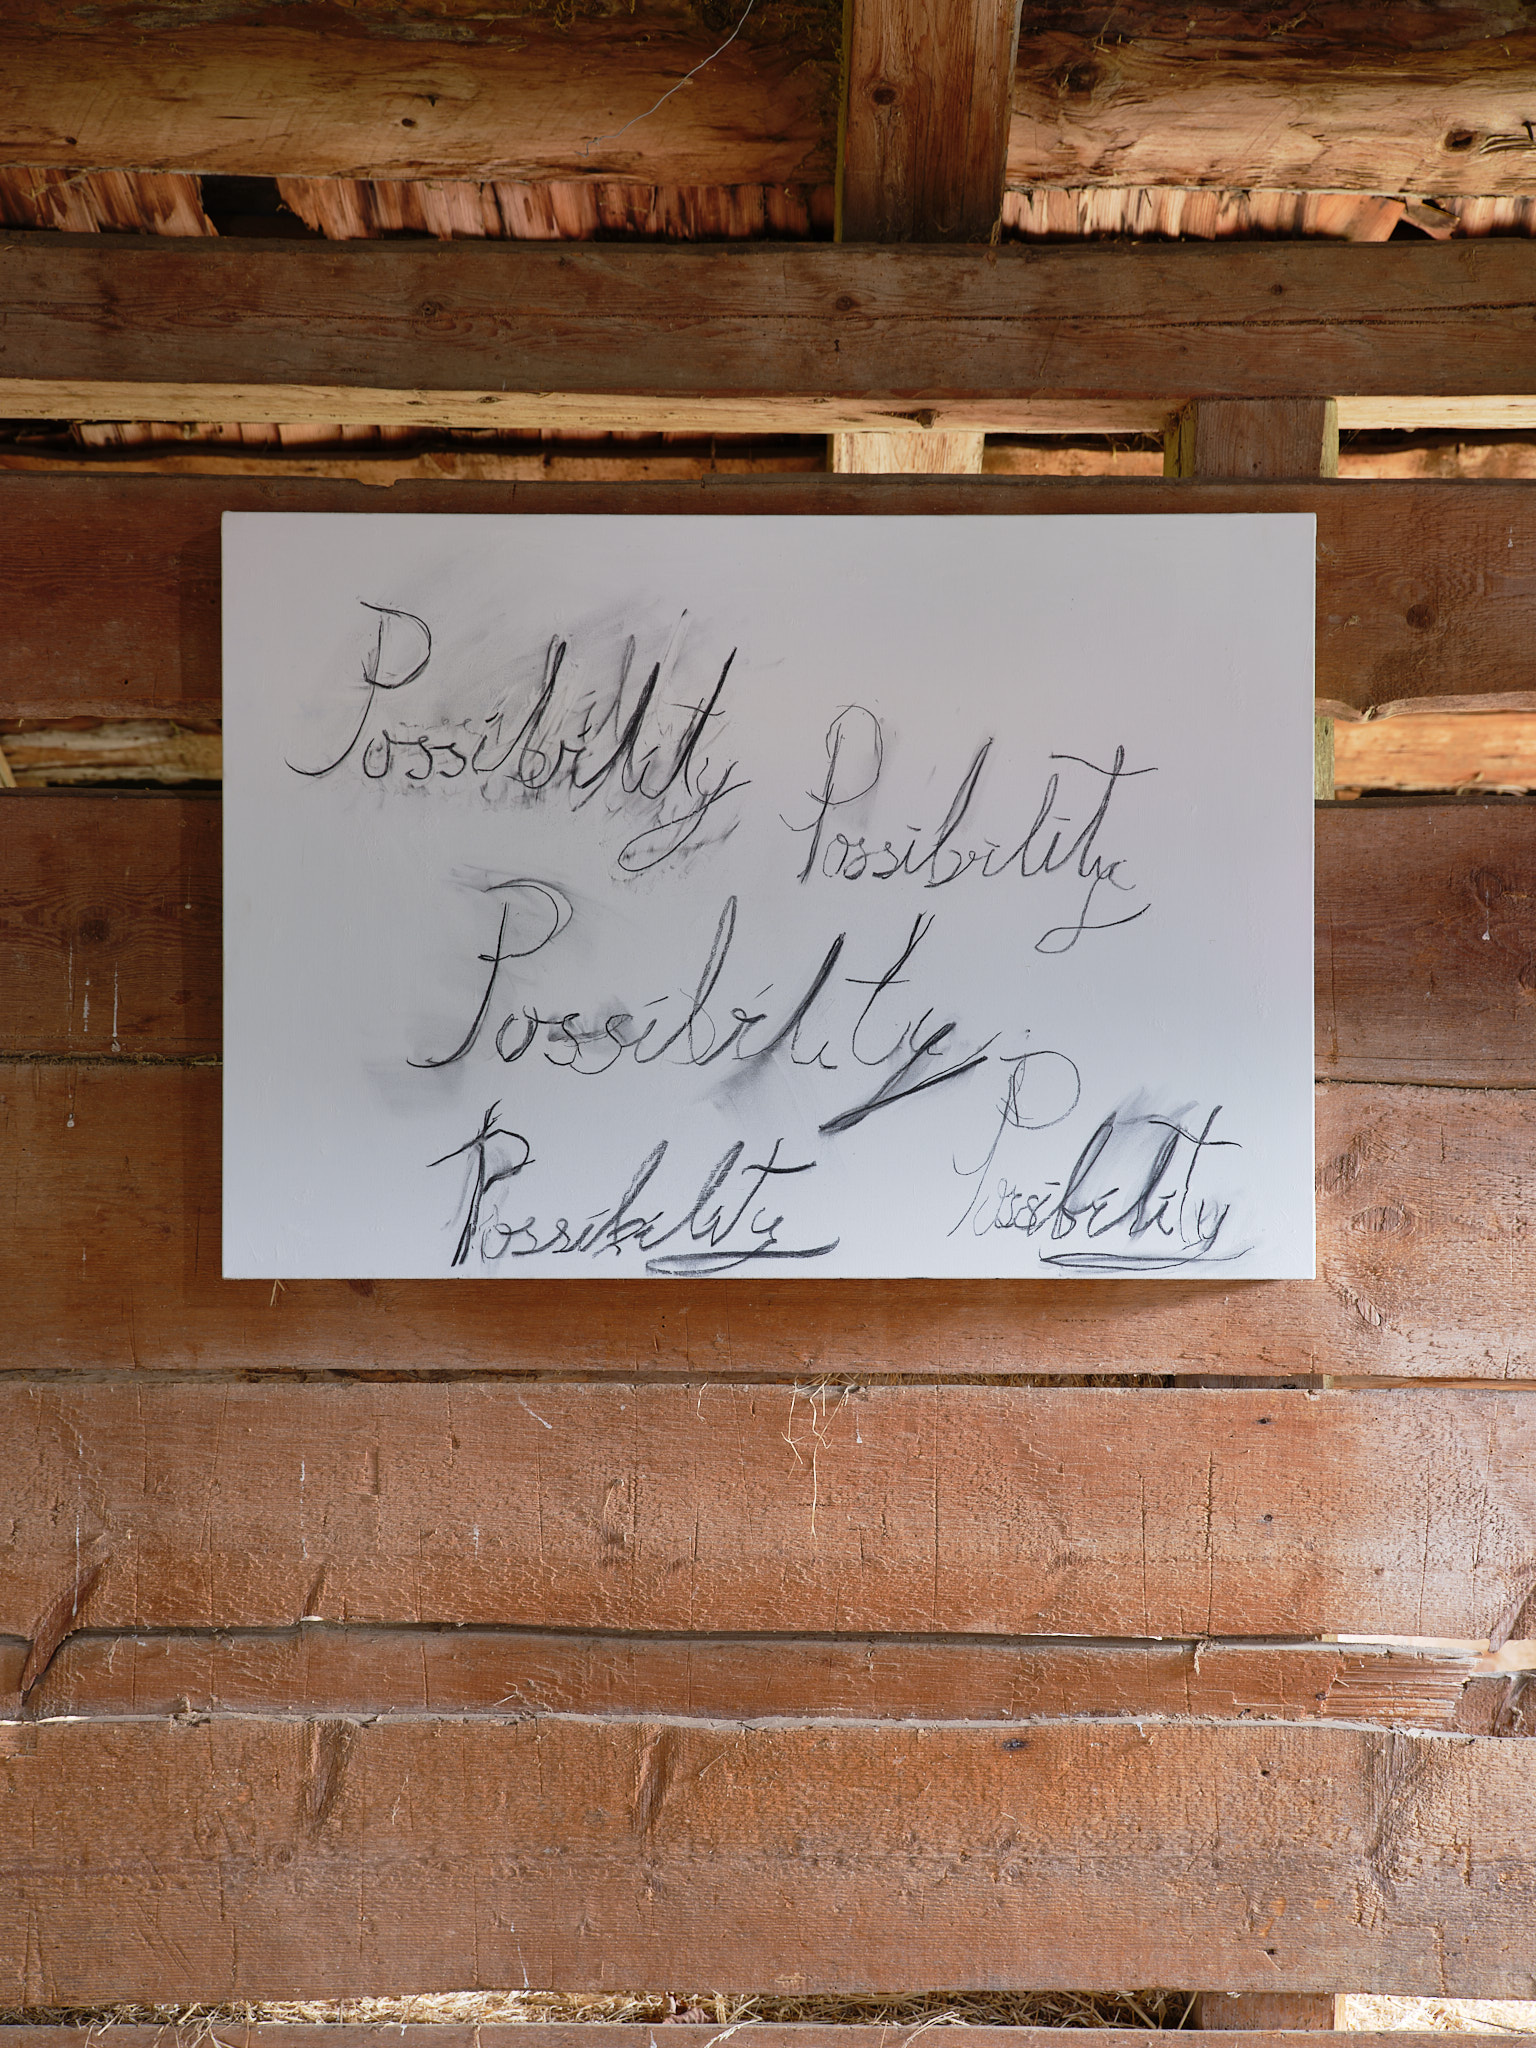 Possibility
Possibility
Possibility
Possibility
Possibility